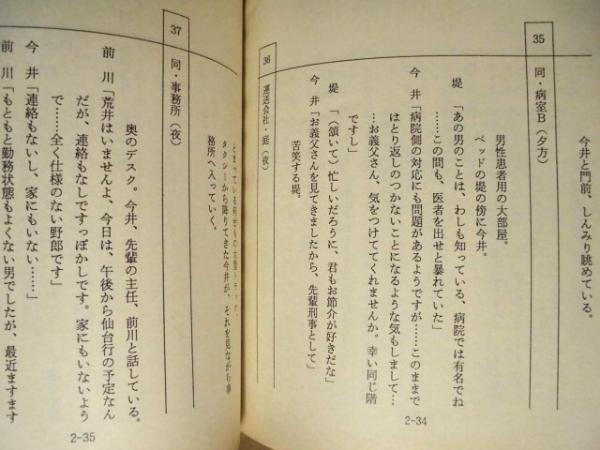 今井と門前、しんみり眺めている。
35 同・病室B（夕方）
男性患者用の大部屋。
ベッドの堤の傍に今井。
堤 「あの男のことは、わしも知っている、病院では有名でね
……この間も、医者を出せと暴れていた」
今 井「病院側の対応にも問題があるようですが……このままで
はとり返しのつかないことになるような気もしまして…
…お義父さん、気をつけててくれませんか。幸い同じ階
ですし」
堤 「（頷いて）忙しいだろうに、君もお節介が好きだな」
今 井「お義父さんを見てきましたから、先輩刑事として」
苦笑する堤。
36 運送会社・庭（夜）
タクシーから降りてきた今井が、それを見ながら事
務所へ入っていく。
2-34
37 同・事務所（夜）
奥のデスク。今井、先輩の主任、前川と話している。
前 川「荒井はいませんよ、今日は、午後から仙台行の予定なん
だが、連絡もなしですっぽかしです。家にもいないよう
で……全く仕様のない野郎です」
今 井「連絡もないし、家にもいない……」
前 川「もともと勤務状態もよくない男でしたが、最近ますます
2-35